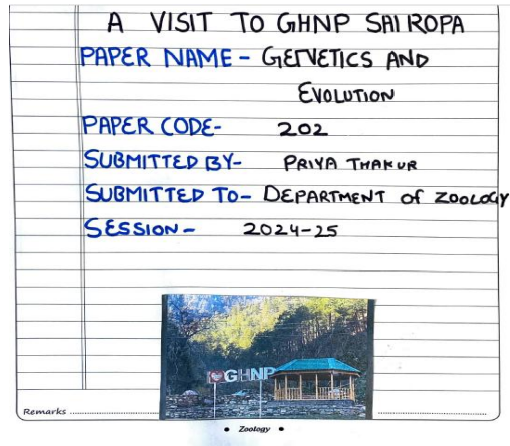 A VISIT TO GHNP SAIROPA
PAPER NAME - GENETICS AND
EVOLUTION
PAPER CODE- 202
SUBMITTED BY- PRIYA THAKUR
SUBMITTED TO- DEPARTMENT OF ZOOLOGY
SESSION- 2024-25
GHNP
Remarks
• Zoology •